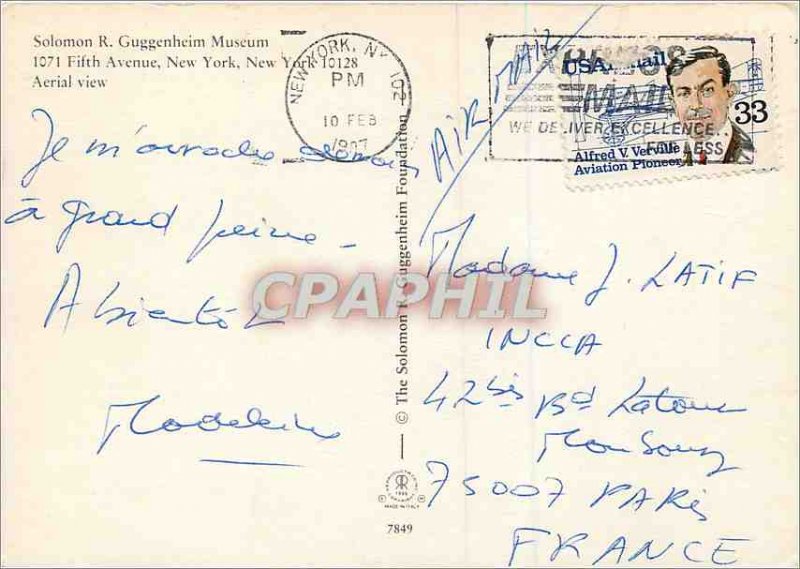 Solomon R. Guggenheim Museum
1071 Fifth Avenue, New York, New York 10128
Aerial view
NEW YORK, NY 102
PM
10 FEB
AIR MAIL
EXPRESS
MAIL
WE DELIVER EXCELLENCE
FOR LESS
USAirmail
33
Alfred V. Verville
Aviation Pioneer
Je m'arrache demain
à grand peine -
A bientôt
Madeleine
Madame J. LATIF
INCCA
42 bis Bd Latour
Maubourg
75007 PARIS
FRANCE
© The Solomon R. Guggenheim Foundation
CPAPHIL
MADE IN ITALY
7849